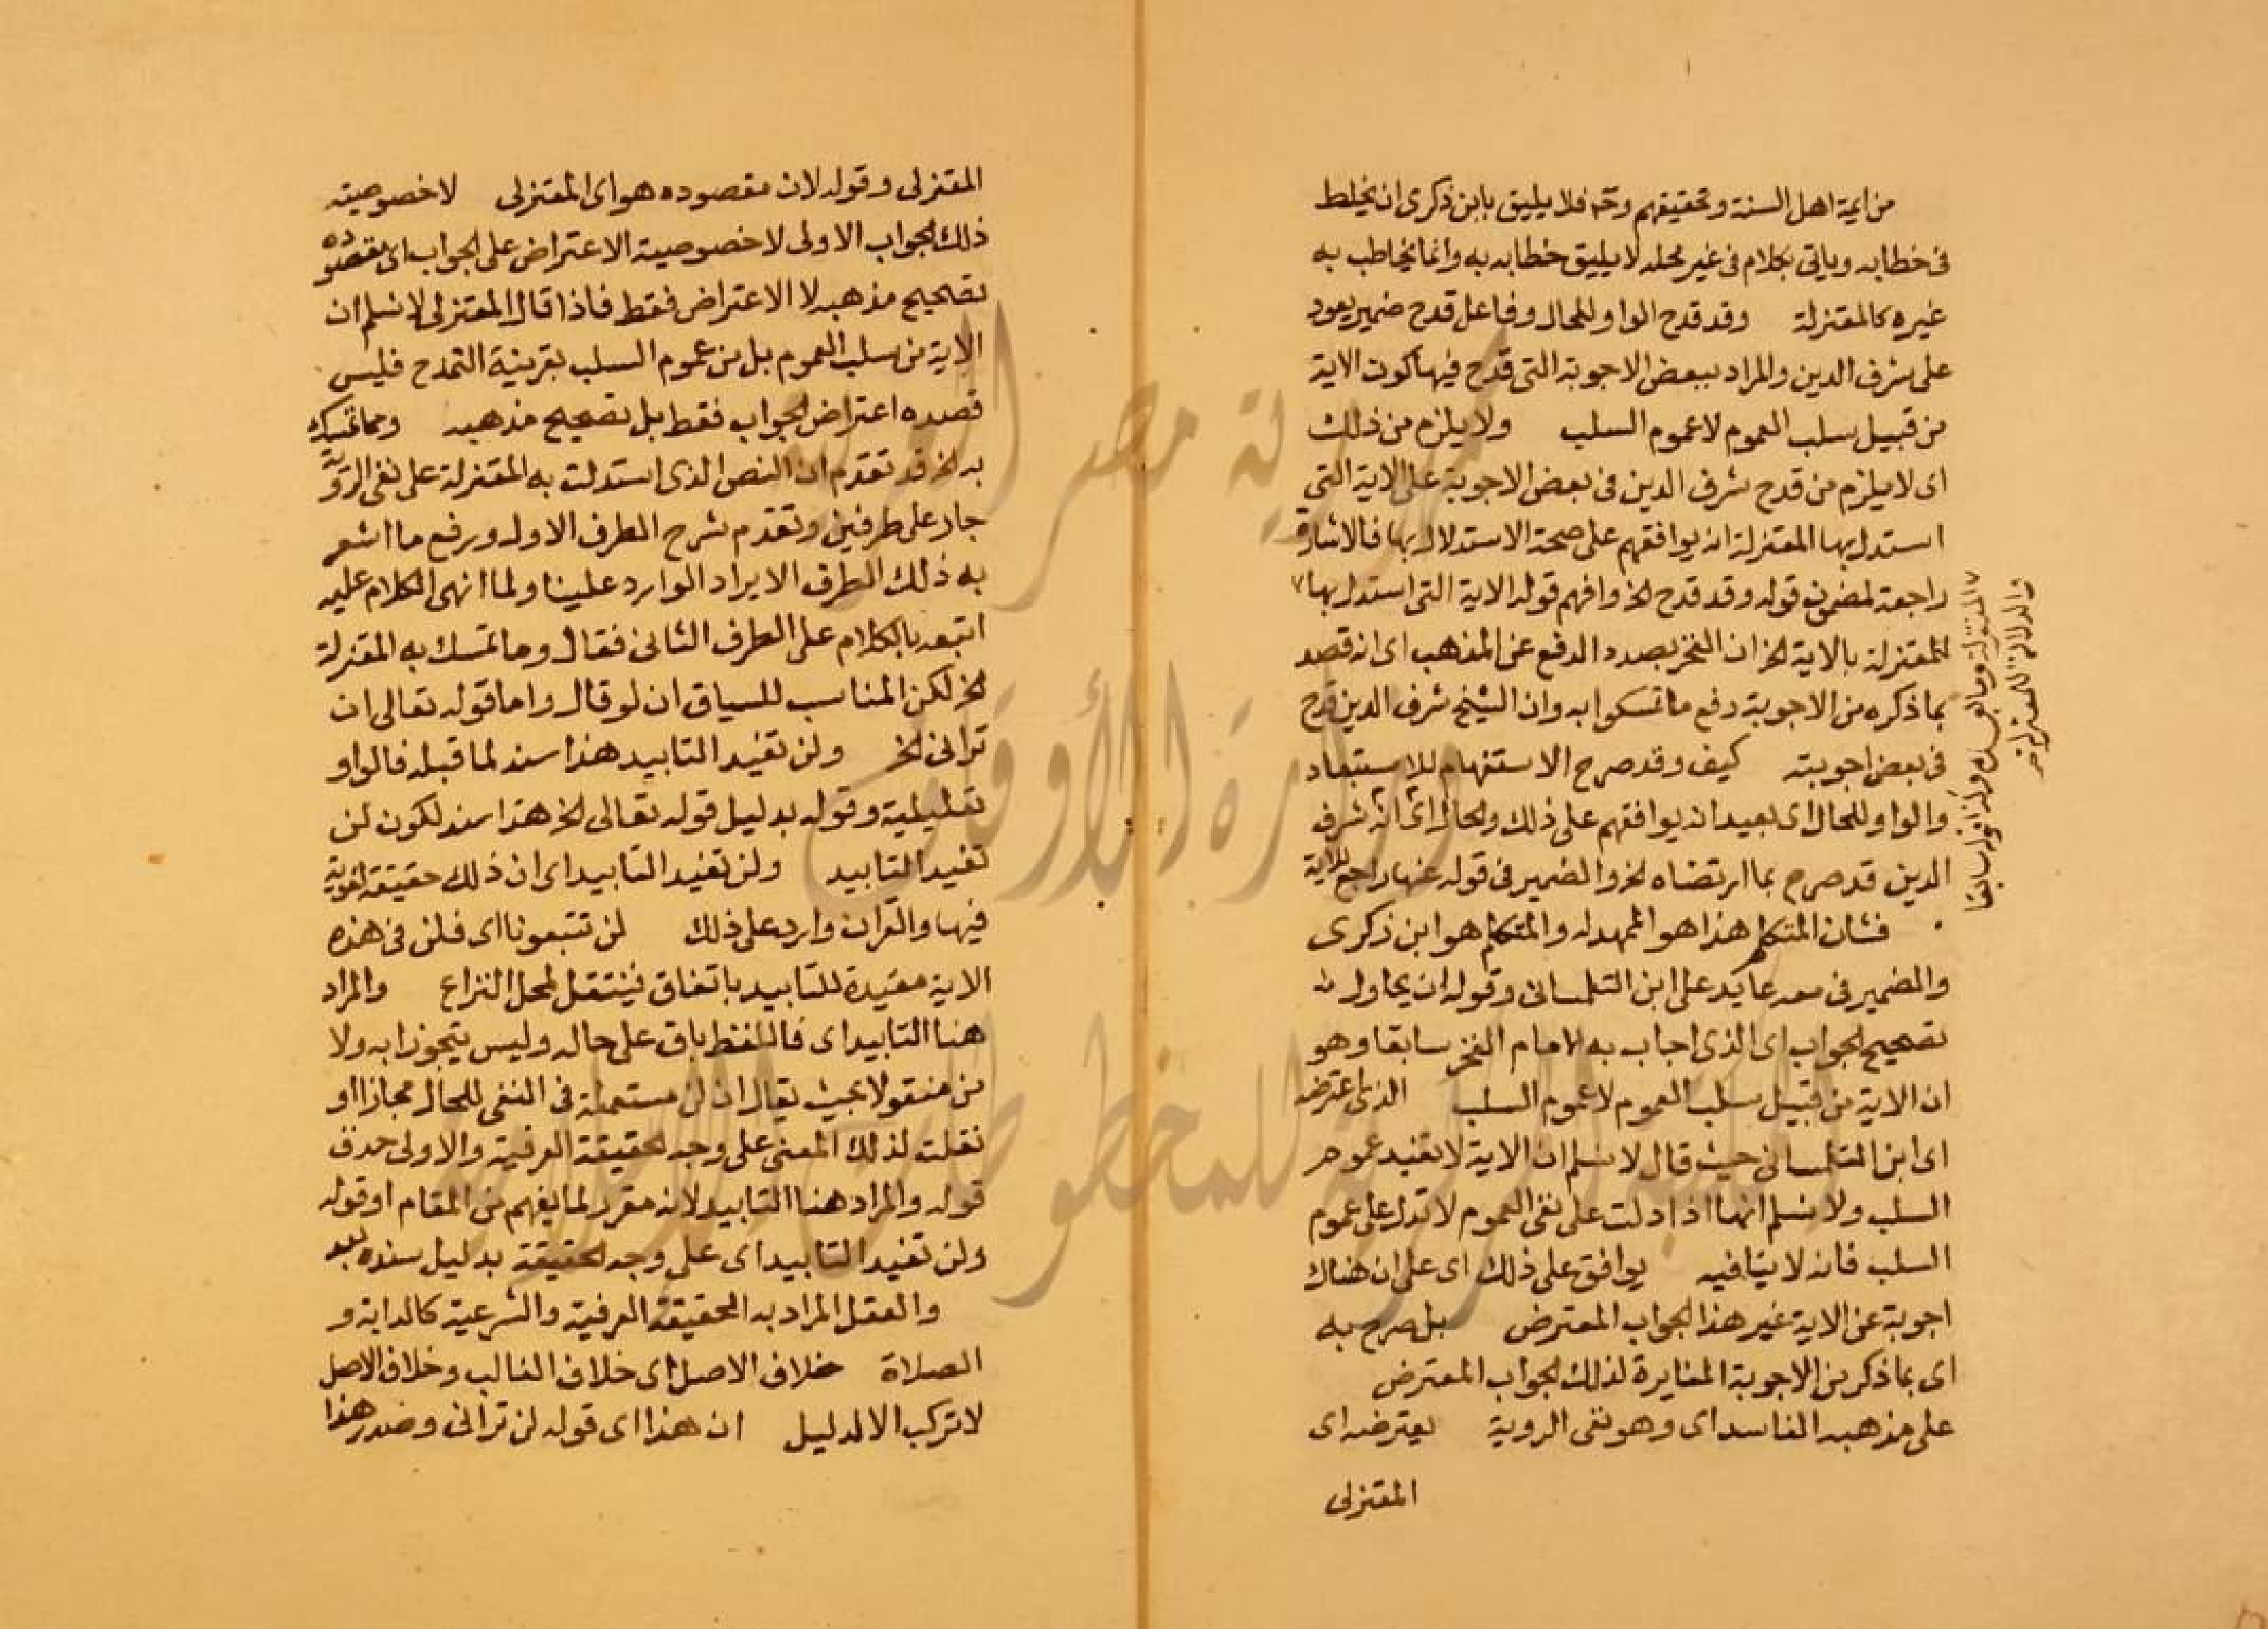 من ايمة اهل السنة وتحقيقهم وح فلا يليق بابن ذكرى ان يخلط
فى خطابه وياتى بكلام فى غير محله لا يليق خطابه به وانما يخاطب به
غيره كالمعتزلة وقد قدح الواو للحال وفاعل قدح ضمير يعود
على شرف الدين والمراد ببعض الاجوبة التى قدح فيها كون الاية
من قبيل سلب العموم لا عموم السلب ولا يلزم من ذلك
اى لا يلزم من قدح شرف الدين فى بعض الاجوبة على الاية التى
استدل بها المعتزلة انه يوافقهم على صحة الاستدلال بها فالاشارة
راجعة لمضمون قوله وقد قدح الخ وافهم قوله الاية التى استدل بها
المعتزلة بالاية الخ ان الفخر بصدد الدفع عن المذهب اى انه قصد
بما ذكره من الاجوبة دفع ما تمسكوا به وان الشيخ شرف الدين قدح
فى بعض اجوبته كيف وقد صرح الاستفهام للاستبعاد
والواو للحال اى بعيد انه يوافقهم على ذلك والحال اى انه شرف
الدين قد صرح بما ارتضاه الخ والضمير فى قوله عنها راجع للاية
فشان المتكلم هذا هو الممهد له والمتكلم هو ابن ذكرى
والضمير فى معه عايد على ابن التلمسانى وقوله ان يحاول له
تصحيح الجواب اى الذى اجاب به الامام الفخر سابقا وهو
ان الاية من قبيل سلب العموم لا عموم السلب الذى اعترضه
اى ابن التلمسانى حيث قال لا نسلم ان الاية لا تفيد عموم
السلب ولا نسلم انها اذا دلت على نفى العموم لا تدل على عموم
السلب فانه لا ينافيه يوافق على ذلك اى على ان هناك
اجوبة عن الاية غير هذا الجواب المعترض بل صرح به
اى بما ذكر من الاجوبة المغايرة لذلك الجواب المعترض
على مذهبه الفاسد اى وهو نفى الروية يعترضه اى
المعتزلى
والدلالة للمعتزلة
المعتزلى وقوله لان مقصوده هو اى المعتزلى لا خصوصية
ذلك الجواب الاولى لا خصوصية الاعتراض على الجواب اى مقصوده
تصحيح مذهبه لا الاعتراض فقط فاذا قال المعتزلى لا نسلم ان
الاية من سلب العموم بل من عموم السلب بقرينة التمدح فليس
قصده اعتراض الجواب فقط بل تصحيح مذهبه ومما تمسك
به الخ قد تقدم ان النص الذى استدلت به المعتزلة على نفى الروية
جار على طرفين وتقدم شرح الطرف الاول ورفع ما اشعر
به ذلك الطرف الايراد الوارد علينا ولما انهى الكلام عليه
اتبعه بالكلام على الطرف الثانى فقال وما تمسك به المعتزلة
الخ لكن المناسب للسياق ان لو قال واما قوله تعالى ان
ترانى الخ ولن تفيد التابيد هذا سند لما قبله فالواو
تعليلية وقوله بدليل قوله تعالى الخ هذا سند لكون لن
تفيد التابيد ولن تفيد التابيد اى ان ذلك حقيقة لغوية
فيها والقران وارد على ذلك لن تتبعونا اى فلن فى هذه
الاية مفيدة للتابيد باتفاق فينتقل لمحل النزاع والمراد
هنا التابيد اى فاللفظ باق على حاله وليس يتجوزا به ولا
من منقولا بحيث يقال ان لن مستعملة فى النفى للحال مجازا او
نقلت لذلك المعنى على وجه الحقيقة العرفية والاولى حذف
قوله والمراد هنا التابيد لانه مقرر لما يفهم من المقام او قوله
ولن تفيد التابيد اى على وجه الحقيقة بدليل سنده بعد
والعقل المراد به الحقيقة العرفية والشرعية كالدابة و
الصلاة خلاف الاصل اى خلاف الغالب وخلاف الاصل
لا تركب الا لدليل ان هذا اى قوله لن ترانى وصدر هذا
جمهورية مصر العربية
وزارة الأوقاف
المكتبة المركزية للمخطوطات الإسلامية